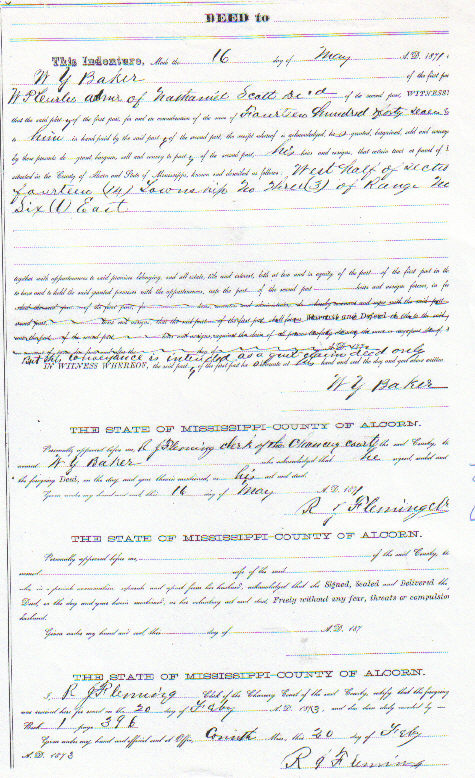 DEED to
This Indenture, Made the 16 day of May A.D. 1871
W Y Baker of the first par
admr of Nathaniel Scott decd of the second part, WITNESS:
that the said party of the first part, for and in consideration of the sum of Fourteen hundred forty seven
to him in hand paid by the said party of the second part, the receipt whereof is acknowledged, granted, bargained, sold and convey
by these presents do grant bargain, sell and convey to party of the second part, his heirs and assigns, that certain tract or parcel of l
situated in the County of Alcorn and State of Mississippi, known and described as follows: West half of sectio
fourteen (14) Township No Three (3) of Range No
Six (6) East
together with appurtenances to said premises belonging, and all estate, title and interest, both at law and in equity of the part of the first part in the
to have and to hold the said granted premises with the appurtenances, unto the part of the second part heirs and assigns forever,
Warrant and Defend
But this conveyance is intended as a quit claim deed only
IN WITNESS WHEREOF, the said party of the first part has hereunto set his hand and seal the day and year above written
W Y Baker
THE STATE OF MISSISSIPPI-COUNTY OF ALCORN.
Personally appeared before me, R J Fleming clerk of the Chancery court of the said County, the
named W Y Baker who acknowledged that he signed, sealed and
the foregoing Deed, on the day and year therein mentioned, as his act and deed.
Given under my hand and seal this 16 day of May A.D. 1871
R J Fleming Clk
THE STATE OF MISSISSIPPI-COUNTY OF ALCORN.
Personally appeared before me, of the said County, the
named wife of the said
who, in a private examination, separate and apart from her husband, acknowledged that she Signed, Sealed and Delivered the
Deed, on the day and year therein mentioned, as her voluntary act and deed, Freely without any fear, threats or compulsion
husband.
Given under my hand and seal, this day of A.D. 187
THE STATE OF MISSISSIPPI-COUNTY OF ALCORN.
I, R J Fleming Clerk of the Chancery Court of the said County, certify that the foregoing
was received for record on the 20 day of Feby A.D. 1873, and has been duly recorded by
Book 1 page 396
Given under my hand and official seal at Office, Corinth Miss, this 20 of Feby
A.D. 1873
R J Fleming